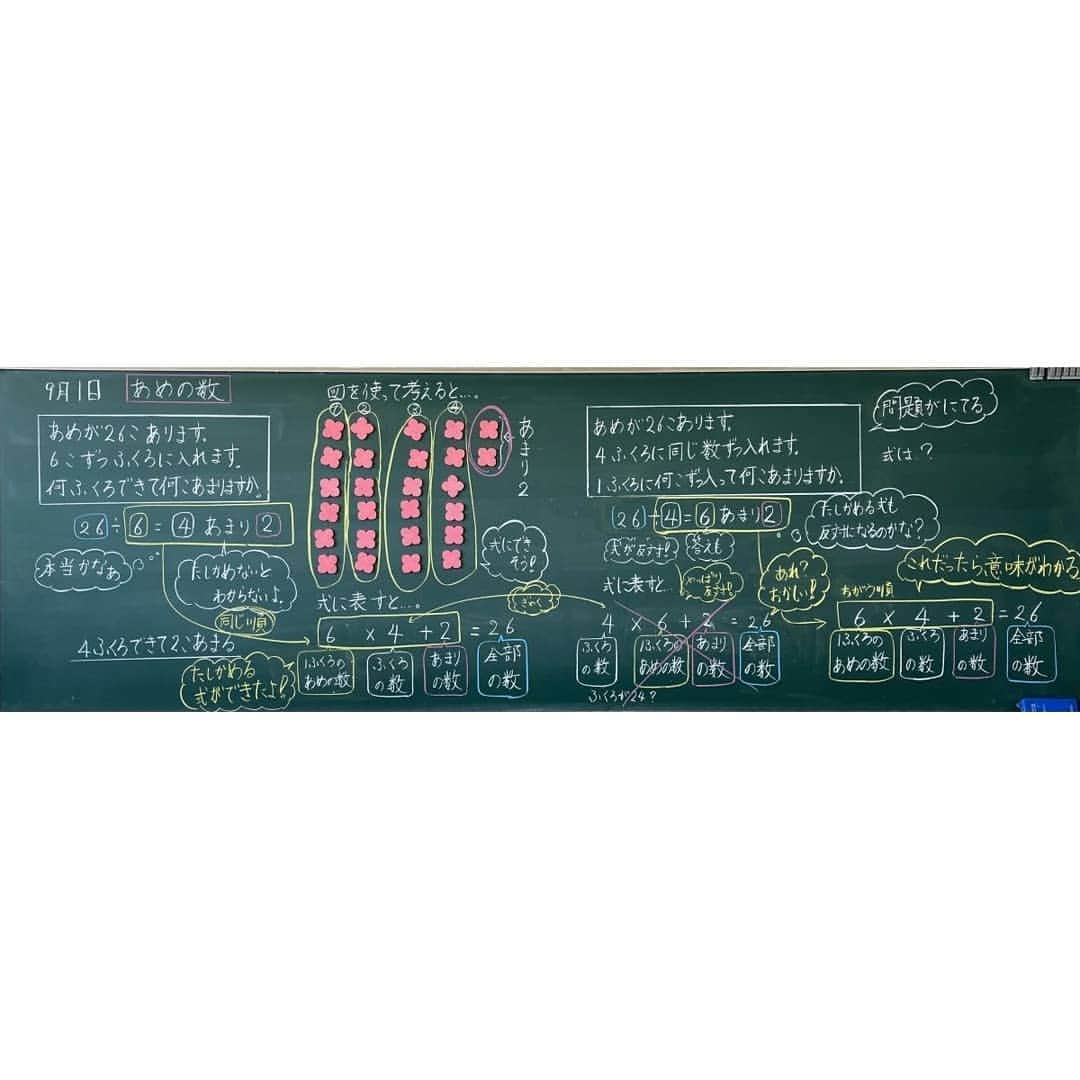 9月1日
あめの数
あめが26こあります。
6こずつふくろに入れます。
何ふくろできて何こあまりますか。
26÷6=4あまり2
本当かなぁ
たしかめないと
わからないよ。
同じ順
4ふくろできて2こあまる
たしかめる
式ができたよ!
図を使って考えると…。
① ② ③ ④
あまり2
式にでき
そう!
式に表すと…。
ぎゃく
6×4+2=26
1ふくろの
あめの数
ふくろ
の数
あまり
の数
全部
の数
あめが26こあります。
4ふくろに同じ数ずつ入れます。
1ふくろに何こずつ入って何こあまりますか。
問題がにてる
式は?
26÷4=6あまり2
式が反対!
答えも
たしかめる式も
反対になるのかな?
式に表すと…
やっぱり
反対!
あれ?
おかしい!
4×6+2=26
ふくろ
の数
1ふくろの
あめの数
あまり
の数
全部
の数
ふくろが24?
これだったら意味がわかる
ちがう順
6×4+2=26
1ふくろの
あめの数
ふくろ
の数
あまり
の数
全部
の数